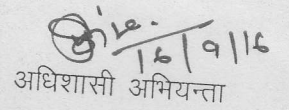 16/9/16
अधिशासी अभियन्ता